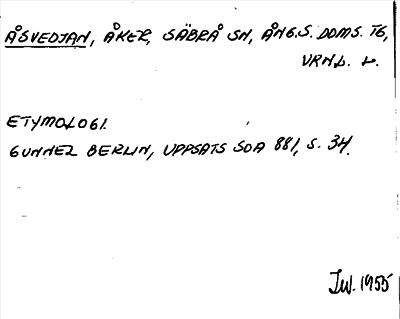 ÅSVEDJAN, ÅKER, SÄBRÅ SN, ÅNG.S. DOMS. TG,
VRNL. L.
ETYMOLOGI.
GUNNEL BERLIN, UPPSATS SOA 881, S. 34.
1955